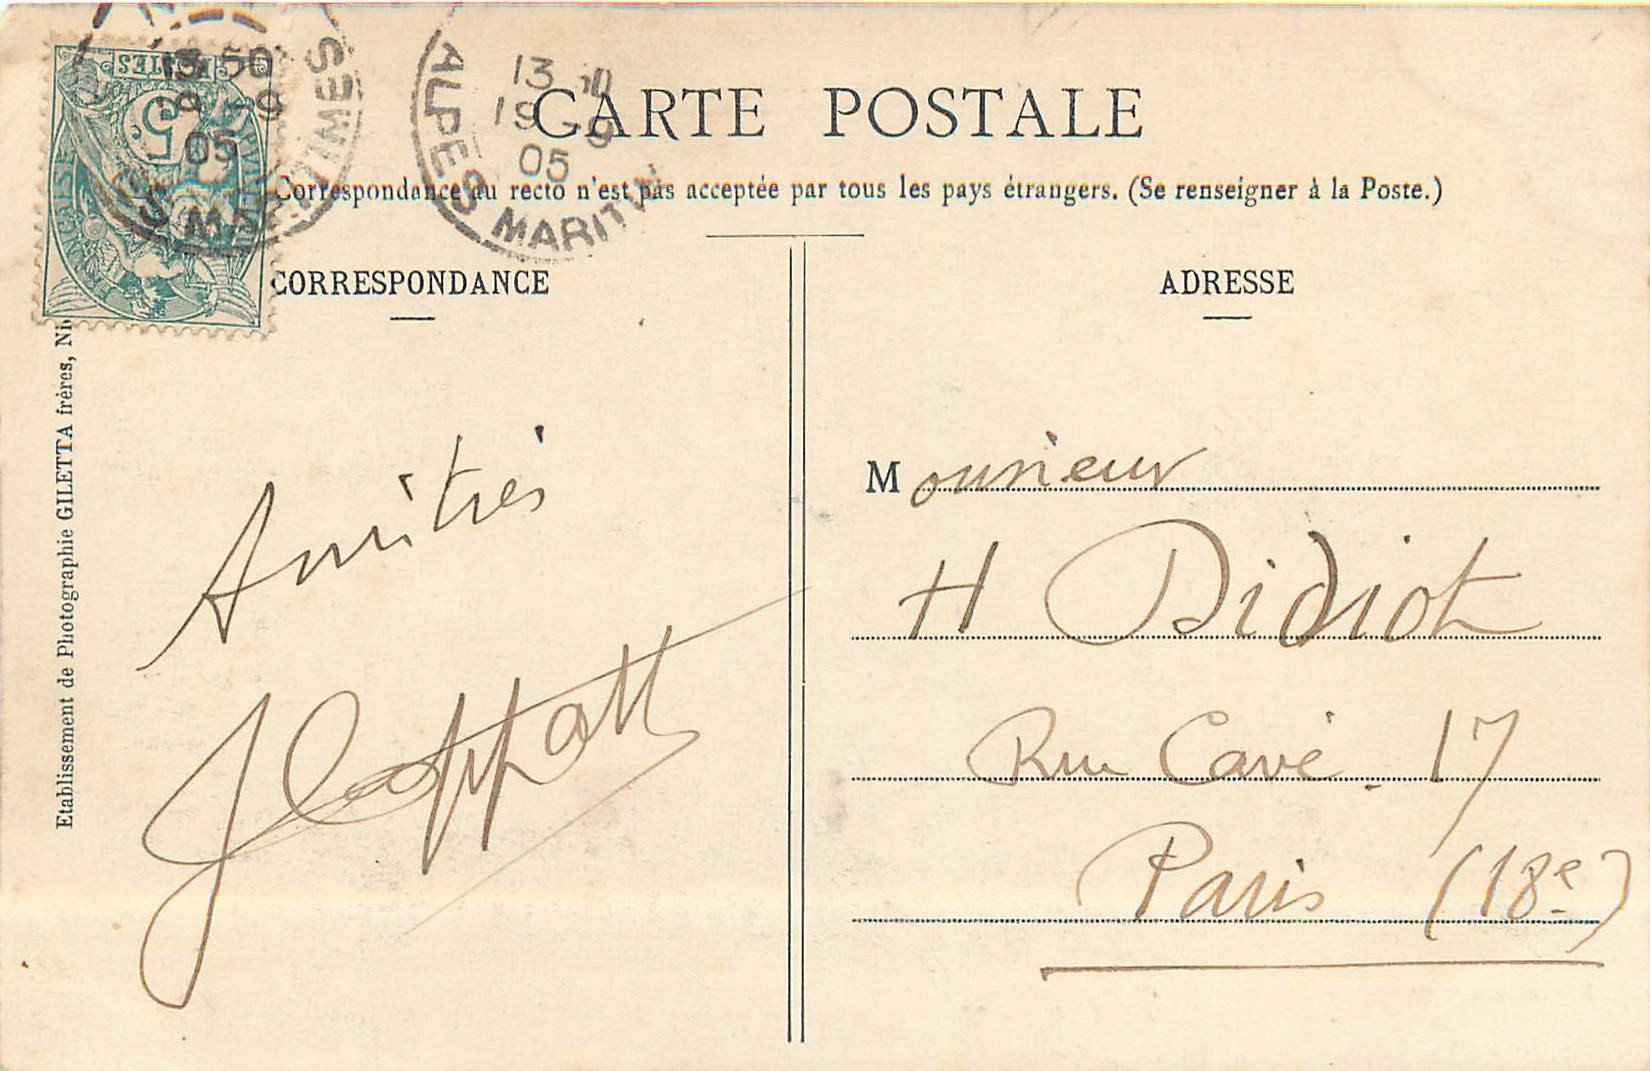 CARTE POSTALE
Correspondance au recto n'est pas acceptée par tous les pays étrangers. (Se renseigner à la Poste.)
CORRESPONDANCE
ADRESSE
POSTES
5
13 50
05
MARITIMES
13
19 - 9
05
ALPES MARITIM
Etablissement de Photographie GILETTA frères, Ni
Amitiés
Monsieur
H Didiot
Rue Cavé. 17
Paris (18e)